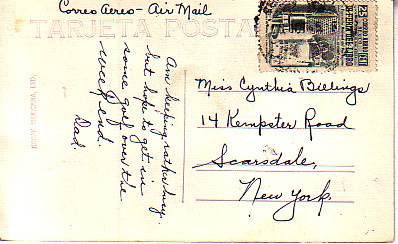 Correo Aereo - Air Mail
TARJETA POSTAL
Am keeping rather busy
but hope to get in
some golf over the
week end.
Dad.
Miss Cynthia Billings
14 Kempster Road
Scarsdale,
New York.